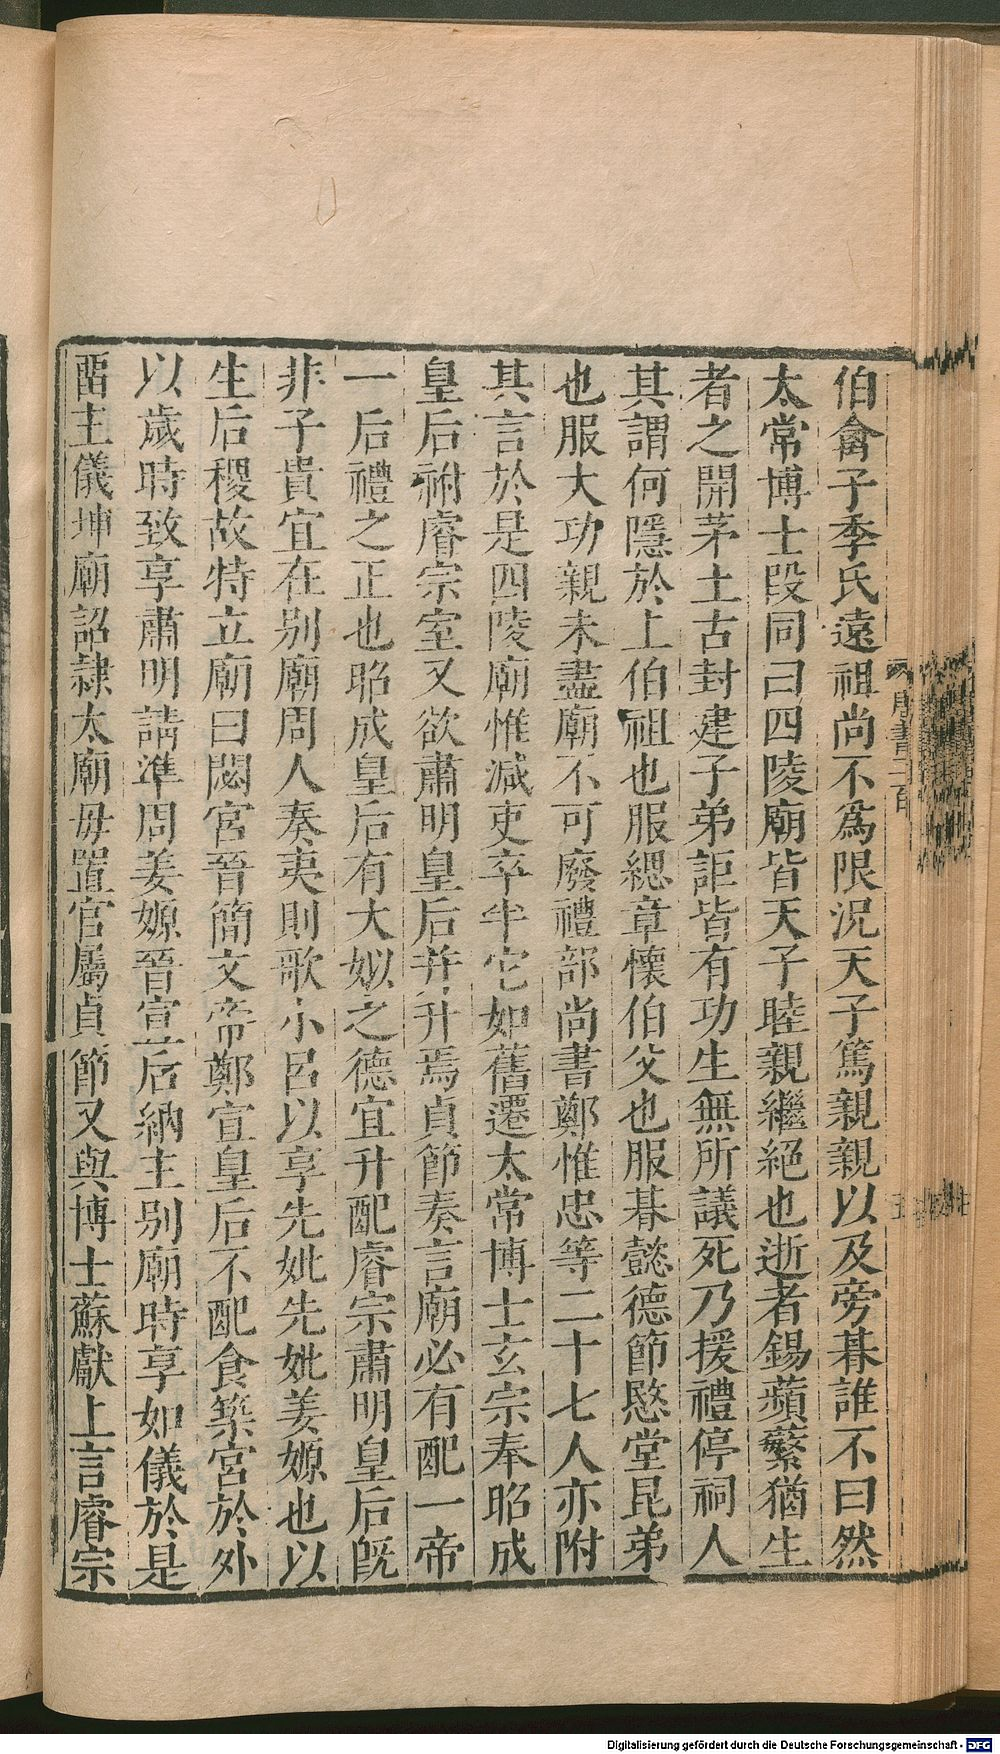 伯禽子季氏遠祖尚不爲限況天子篤親親以及旁朞誰不曰然
太常博士段同曰四陵廟皆天子睦親繼絕也逝者錫蘋蘩猶生
者之開茅土古封建子弟詎皆有功生無所議死乃援禮停祠人
其謂何隱於上伯祖也服緦章懷伯父也服朞懿德節愍堂昆弟
也服大功親未盡廟不可廢禮部尚書鄭惟忠等二十七人亦附
其言於是四陵廟惟減吏卒半它如舊遷太常博士玄宗奉昭成
皇后祔睿宗室又欲肅明皇后并升焉貞節奏言廟必有配一帝
一后禮之正也昭成皇后有大姒之德宜升配睿宗肅明皇后既
非子貴宜在别廟周人奏夷則歌小呂以享先妣先妣姜嫄也以
生后稷故特立廟曰閟宮晉簡文帝鄭宣皇后不配食築宮於外
以歲時致享肅明請準周姜嫄晉宣后納主别廟時享如儀於是
畱主儀坤廟詔隸太廟毋置官屬貞節又與博士蘇獻上言睿宗
唐書二百
五
Digitalisierung gefördert durch die Deutsche Forschungsgemeinschaft - DFG